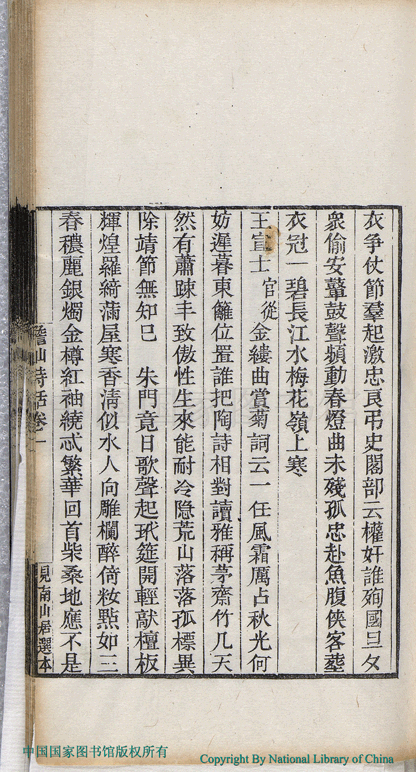 衣爭仗節羣起激忠良弔史閣部云權奸誰殉國旦夕
衆偷安鼙鼓聲頻動春燈曲未殘孤忠赴魚腹俠客塟
衣冠一碧長江水梅花嶺上寒
王宣士官從金縷曲賞菊詞云一任風霜厲占秋光何
妨遲暮東籬位置誰把陶詩相對讀雅稱茅齋竹几天
然有蕭疎丰致傲性生來能耐冷隐荒山落落孤標異
除靖節無知巳 朱門竟日歌聲起玳筵開輕敲檀板
輝煌羅綺滿屋寒香清似水人向雕欄醉倚妝點如三
春穠麗銀燭金樽紅袖繞忒繁華回首柴桑地應不是
詹山诗话卷一
見南山居選本
中国国家图书馆版权所有
Copyright By National Library of China